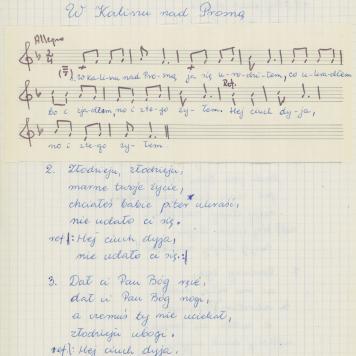 W Kaliszu nad Prosną
Allegro
2/4
1. W kaliszu nad Pro-sną ja się u-ro-dzi-łem, co u-kra-dłem
Ref.
to i zja-dłem, no i złe-go ży-łem. Hej ciuch dy-ja,
no i złe-go ży-łem
2. Złodzieju, złodzieju,
marne twoje życie,
chciałeś babie pierz ukraść,
nie udało ci się.
ref |: Hej ciuch dyja,
nie udało ci się. :|
3. Dał ci Pan Bóg ręce,
dał ci Pan Bóg nogi,
a czemuś ty nie uciekał,
złodzieju ubogi.
ref |: Hej ciuch dyja,